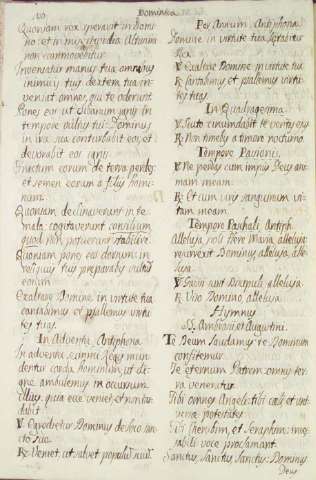 Dominica
Quoniam rex speravit in Domi-
no et in misericordia Altissimi
non commovebitur
Inveniatur manus tua omnibus
inimicis tuis dextera tua in-
veniat omnes, qui te oderunt
Pones eos ut clibanum ignis in
tempore vultus tui: Dominus
in ira sua conturbabit eos, et
devorabit eos ignis
Fructum eorum de terra perdes:
et semen eorum a filijs homi-
num.
Quoniam declinaverunt in te
mala cogitaverunt consilium
quod non potuerunt stabilire
Quoniam pones eos dorsum: in
reliquis tuis preparabis vultum
eorum
Exaltare Domine in virtute tua
cantabimus et psalemus virtu-
tes tuas.
In Adventu Antiphona
In adventu summi Regis mun-
dentur corda hominum, ut di-
gne ambulemus in occursum
illius, quia ecce veniet, et non tar-
dabit
V. Egredietur Dominus de loco san-
cto suo.
R. Veniet, ut salvet populum suum
Per Annum, Antiphona
Domine in virtute tua letabitur
Rex
V. Exaltare Domine in virtute tua
R. Cantabimus et psalemus virtu-
tes tuas
In Quadragesima
V. Scuto circundabit te veritas ejus
R. Non timebis a timore nocturno
Tempore Passionis.
V. Ne perdas cum impijs Deus ani-
mam meam.
R. Et cum viris sanguinum vi-
tam meam
Tempore Paschali, Antiph.
Alleluja, noli flere Maria, alleluja
resurrexit Dominus alleluja, alle-
luja
V. Gavisi sunt Discipuli alleluja
R. Viso Domino alleluja
Hymnus
SS. Ambrosii et Augustini.
Te Deum laudamus te Dominum
confitemur
Te eternum Patrem omnis ter-
ra veneratur
Tibi omnes Angeli tibi celi et uni-
verse potestates
Tibi Cherubim, et Seraphim: ince-
sabili voce proclamant
Sanctus, Sanctus, Sanctus Dominus
Deus